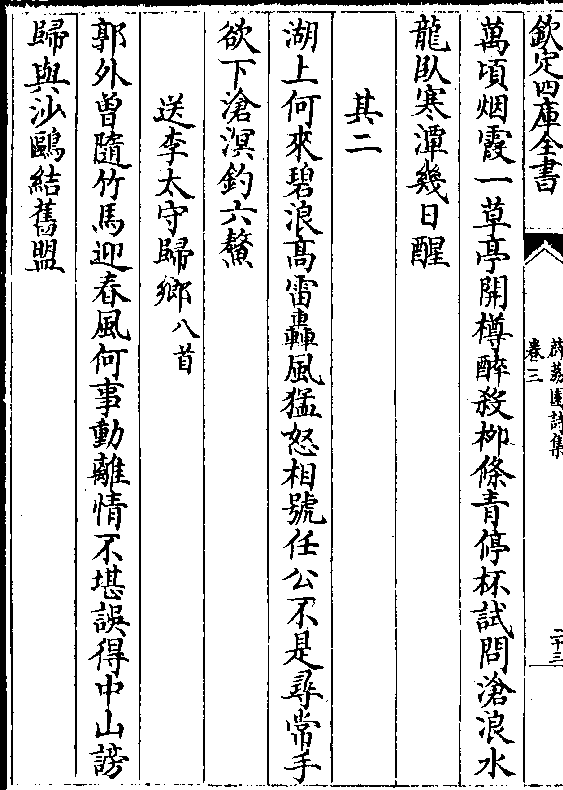 欽定四庫全書
薜荔園詩集
卷三
二十三
萬頃烟霞一草亭開樽醉殺柳條青停杯試問滄浪水
龍臥寒潭幾日醒
其二
湖上何來碧浪高雷轟風猛怒相號任公不是尋常手
欲下滄溟釣六鰲
送李太守歸鄉八首
郭外曽隨竹馬迎春風何事動離情不堪誤得中山謗
歸與沙鷗結舊盟